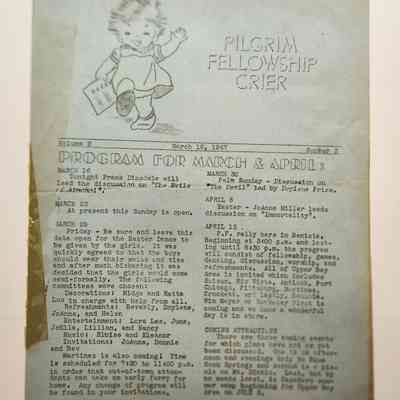 PILGRIM
FELLOWSHIP
CRIER
Volume March 16, 1947 Number 2
PROGRAM FOR MARCH & APRIL:
MARCH 16
Tonight Frank Dinsdale will
lead the discussion on "The Evils
of
MARCH 23
At present this Sunday is open.
Friday - Be sure and leave this
date open for the Easter Dance to
be given by the girls. It was
quickly agreed so that the boys
should wear their suits and ties
and after much blushing it was
decided that the girls would come
semi-formally. The following
committees were chosen:
Decorations: Midge and Watta
Lou in charge with help from all.
Refreshments: Beverly, Doylene,
Joanne, and Helen
Entertainment: Lora Lee, June,
Lillian, and Nancy
Music: Eloise and Eleanor
Invitations: Joanna, Donnie
and Bev
Martinez is also coming! Time
is scheduled for 7:30 to 11:00 p.m.
in order that out-of-town attend-
ants can take an early ferry for
home. Any change of program will
be found in your invitations.
MARCH 30
Palm Sunday - Discussion on
"The Devil" led by Doylene Price.
APRIL 6
Easter - Joanne Miller leads
discussion on "Immortality".
APRIL 13
P.F. rally here in Benicia.
Beginning at 3:00 p.m. and last-
ing until 8:30 p.m. the program
will consist of fellowship, games,
dancing, discussion, worship, and
refreshments. All of Upper Bay
Area is invited which includes
Antioch, Port
Chicago, Pittsburg, Martinez,
Crockett,
coming and we know a wonderful
day is in store.
COMING ATTRACTIONS
There are three coming events
for which plans have as yet
been discussed. One is an after-
noon and evenings only to
Springs and second is a pic-
nic on Mt. Diablo. Last, but by
no means least, is
camp beginning for Upper Bay
on JULY